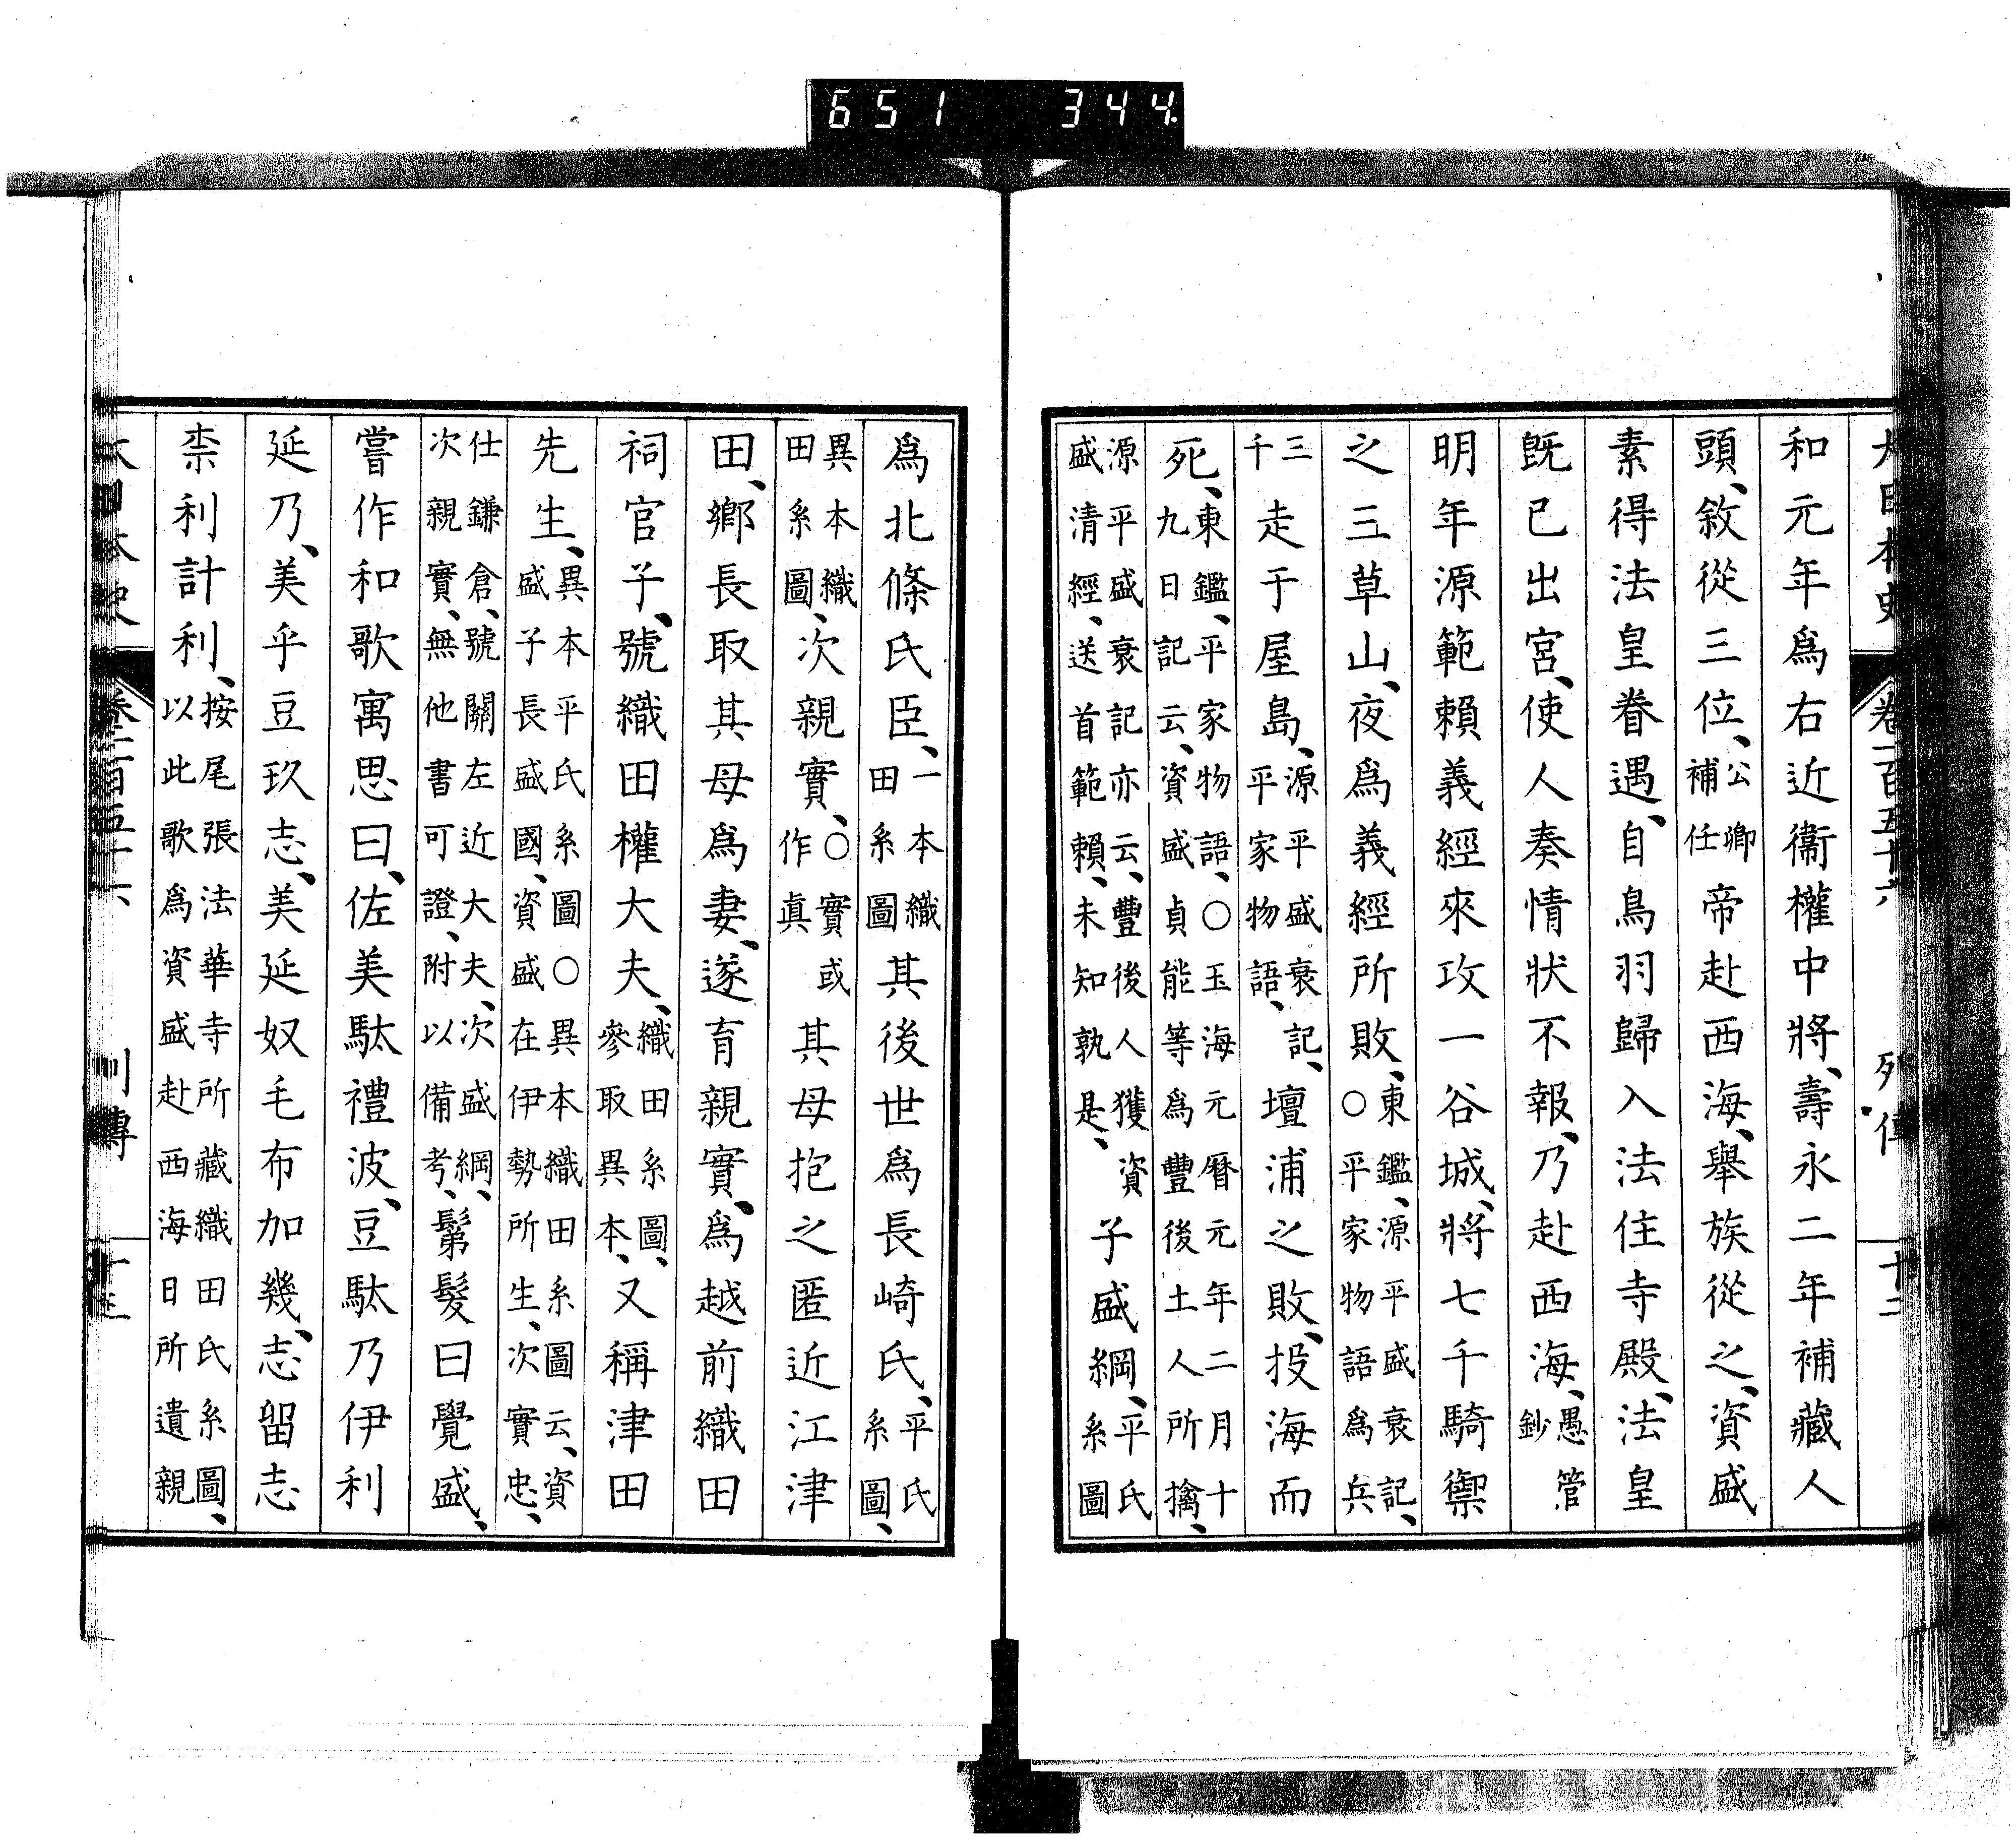 651 344.
大日本史 卷一百五十六 列傳 十二
和元年爲右近衞權中將、壽永二年補藏人
頭、敘從三位、公卿補任帝赴西海、舉族從之、資盛
素得法皇眷遇、自鳥羽歸入法住寺殿、法皇
既已出宮、使人奏情狀不報、乃赴西海、愚管鈔
明年源範賴義經來攻一谷城、將七千騎禦
之三草山、夜爲義經所敗、東鑑、源平盛衰記、○平家物語爲兵
三千走于屋島、源平盛衰記、平家物語、壇浦之敗、投海而
死、東鑑、平家物語、○玉海元曆元年二月十九日記云、資盛貞能等爲豐後土人所擒、
源平盛衰記亦云、豐後人獲資盛清經、送首範賴、未知孰是、子盛綱、平氏系圖
爲北條氏臣、一本織田系圖其後世爲長崎氏、平氏系圖、
異本織田系圖、次親實、○實或作眞其母抱之匿近江津
田、鄉長取其母爲妻、遂育親實、爲越前織田
祠官子、號織田權大夫、織田系圖、參取異本、又稱津田
先生、異本平氏系圖○異本織田系圖云、資盛子長盛國、資盛在伊勢所生、次實忠、
仕鎌倉、號關左近大夫、次盛綱、次親實、無他書可證、附以備考、鬀髮曰覺盛、
嘗作和歌寓思曰、佐美駄禮波、豆駄乃伊利
延乃、美乎豆玖志、美延奴毛布加幾、志留志
柰利計利、按尾張法華寺所藏織田氏系圖、以此歌爲資盛赴西海日所遺親
大日本史 卷一百五十六 列傳 十三